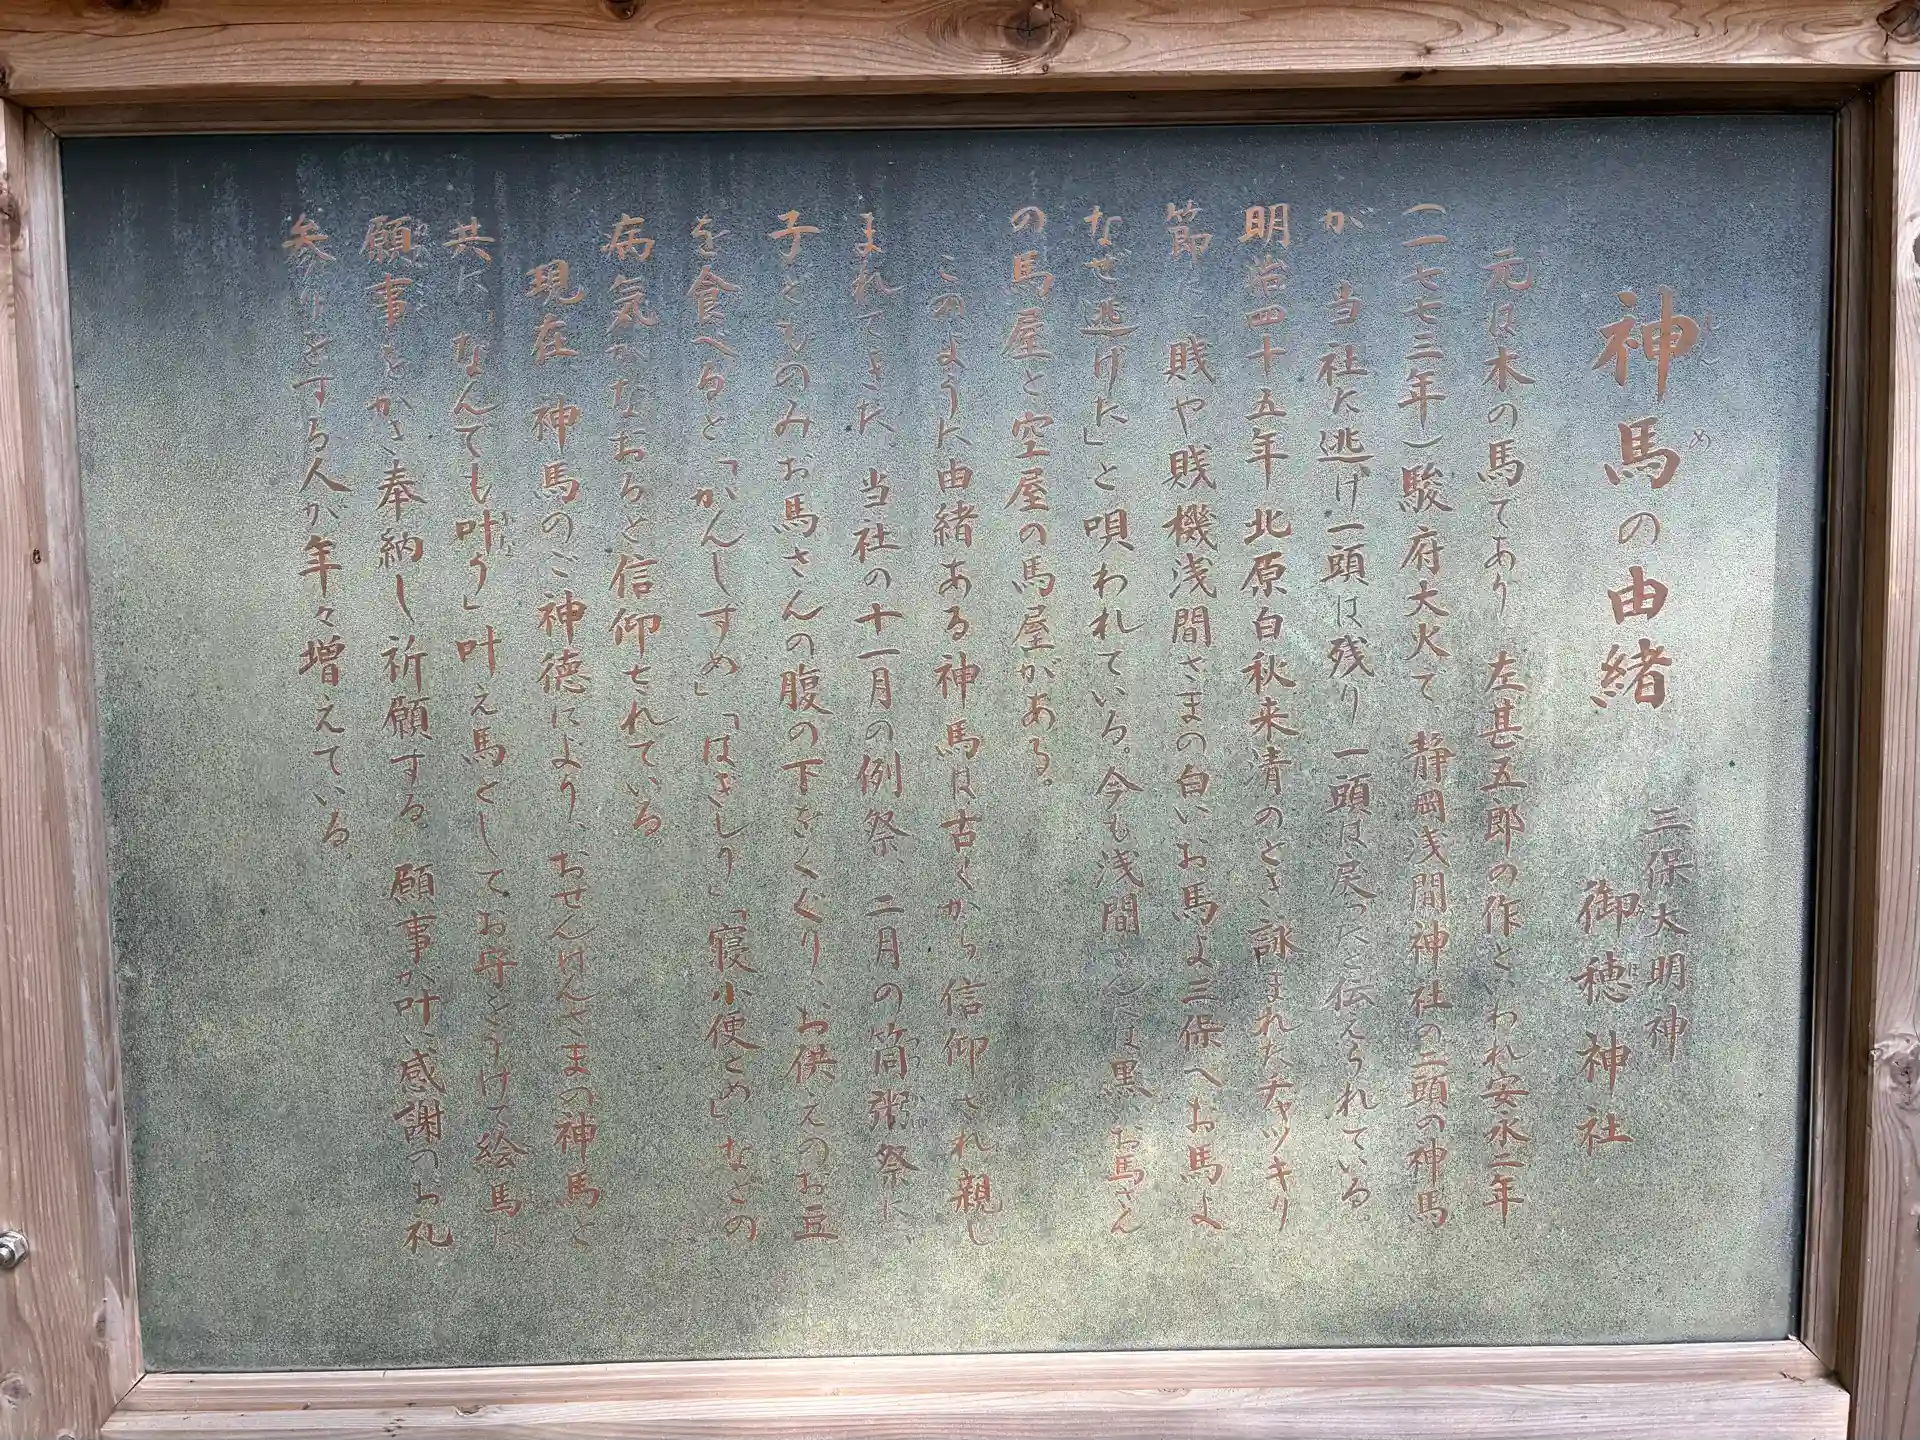 神馬の由緒
しんめ
三保大明神
御穂神社
みほ
元は木の馬であり、左甚五郎の作といわれ安永二年
(一七七三年)駿府大火て 静岡浅間神社の二頭の神馬
が 当社に逃げ一頭は残り一頭は戻ったと伝えられている。
明治四十五年 北原白秋来清のとき詠まれたチャッキリ
節に 賎や賎機浅間さまの白いお馬よ三保へお馬よ
なぜ逃げた」と唄われている。今も浅間さんへは黒、お馬さん
の馬屋と空屋の馬屋がある。
このように由緒ある神馬は古くから信仰され親し
まれてきた。当社の十一月の例祭、二月の筒粥祭に、
子どものみお馬さんの腹の下をくぐり、お供えのお豆
を食べると「かんしすめ」「はきしり」「寝小便とめ」などの
病気がなおると信仰されている。
現在、神馬のご神徳により、おせんげんさまの神馬と
共に、なんでも叶う」叶え馬としてお守をうけて絵馬に
かな
願事をかき奉納し祈願する。願事が叶い感謝のお礼
参りをする人が年々増えている。